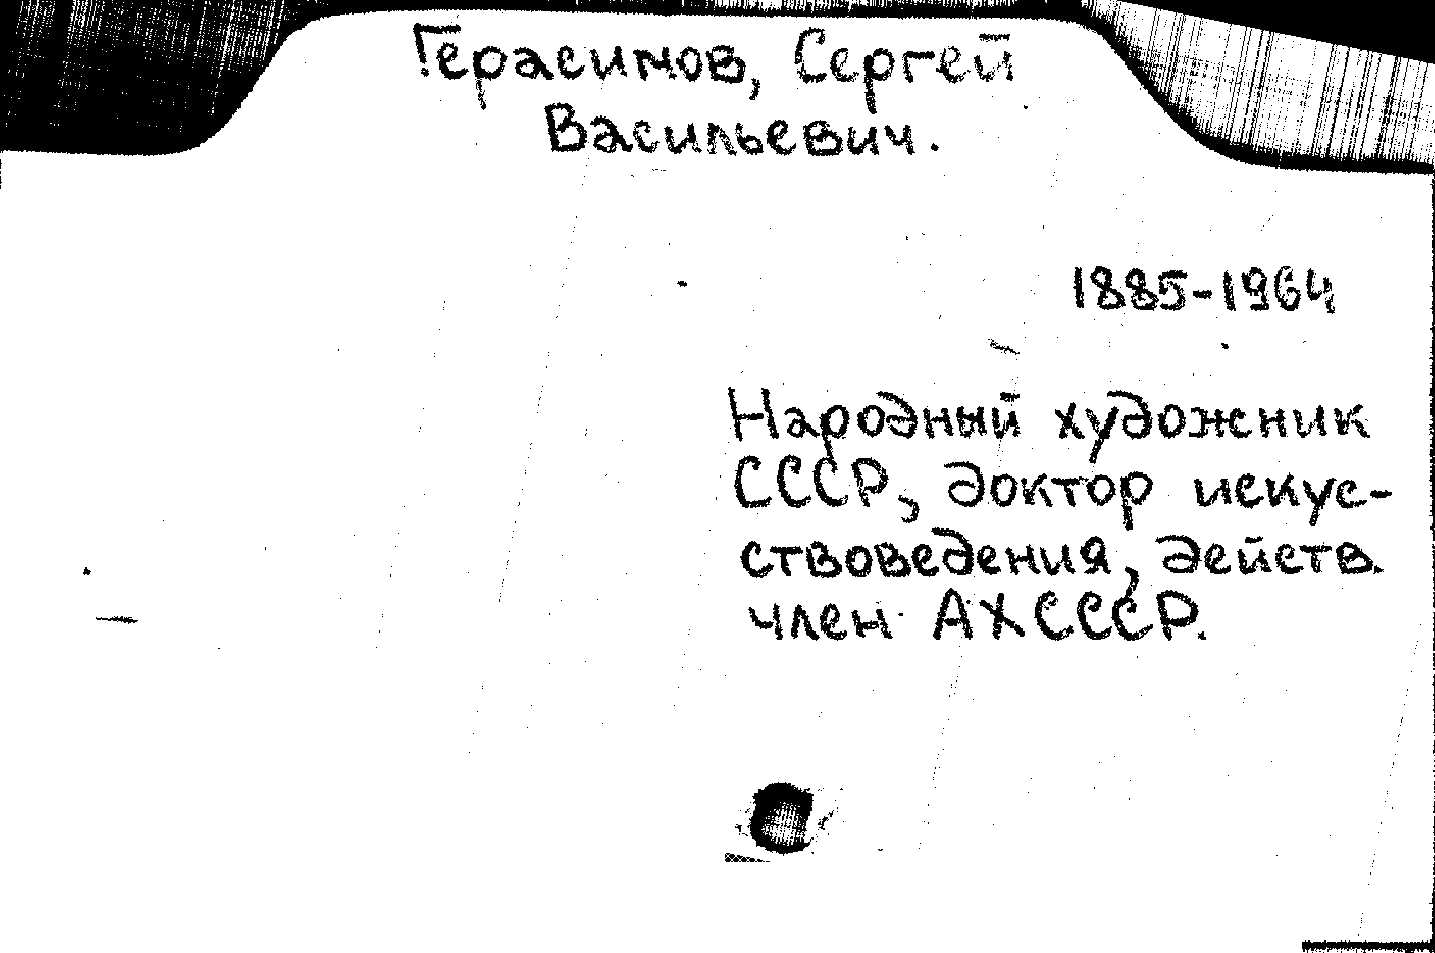 Герасимов, Сергей
Васильевич.
1885-1964
Народный художник
СССР, доктор искус-
ствоведения, действ.
член АХСССР.